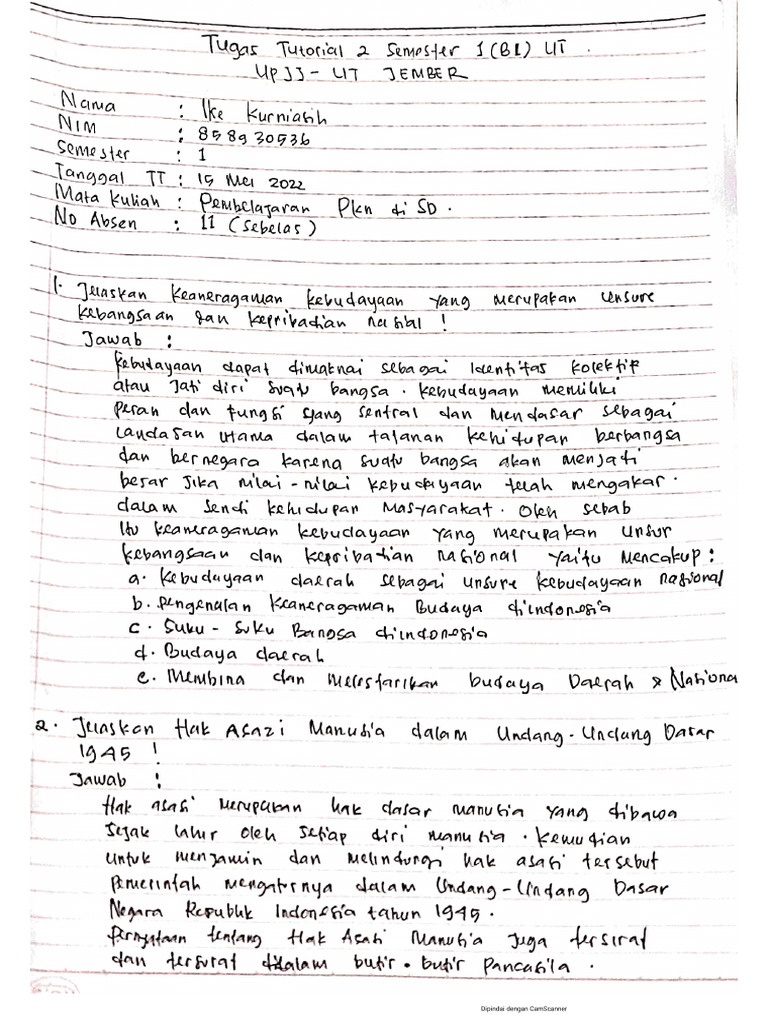 Tugas Tutorial 2 Semester 1 (B1) UT.
UPJJ-UT JEMBER
Nama : Ike Kurniasih
NIM : 858930536
Semester : 1
Tanggal TT : 15 Mei 2022
Mata Kuliah : Pembelajaran PKn di SD.
No Absen : 11 (Sebelas)
1. Jelaskan keaneragaman kebudayaan yang merupakan unsure
kebangsaan dan kepribadian nasional !
Jawab :
Kebudayaan dapat dimaknai sebagai Identitas kolektif
atau Jati diri suatu bangsa. Kebudayaan memiliki
peran dan fungsi yang sentral dan mendasar sebagai
landasan utama dalam tatanan kehidupan berbangsa
dan bernegara karena suatu bangsa akan menjadi
besar jika nilai-nilai kebudayaan telah mengakar.
dalam sendi kehidupan masyarakat. Oleh sebab
itu keaneragaman kebudayaan yang merupakan unsur
kebangsaan dan kepribadian nasional yaitu mencakup :
a. Kebudayaan daerah sebagai unsure kebudayaan nasional
b. Pengenalan Keaneragaman Budaya diindonesia
c. Suku-Suku Bangsa diindonesia
d. Budaya daerah
e. Membina dan melestarikan budaya Daerah & Nasiona
2. Jelaskan Hak Asazi Manusia dalam Undang-Undang Dasar
1945 !
Jawab :
Hak asasi merupakan hak dasar manusia yang dibawa
sejak lahir oleh setiap diri manusia. Kemudian
untuk menjamin dan melindungi hak asasi tersebut
Pemerintah mengaturnya dalam Undang-Undang Dasar
Negara Republik Indonesia tahun 1945.
Pernyataan tentang Hak Asasi Manusia juga tersirat
dan tersurat didalam butir-butir Pancasila.
Dipindai dengan CamScanner